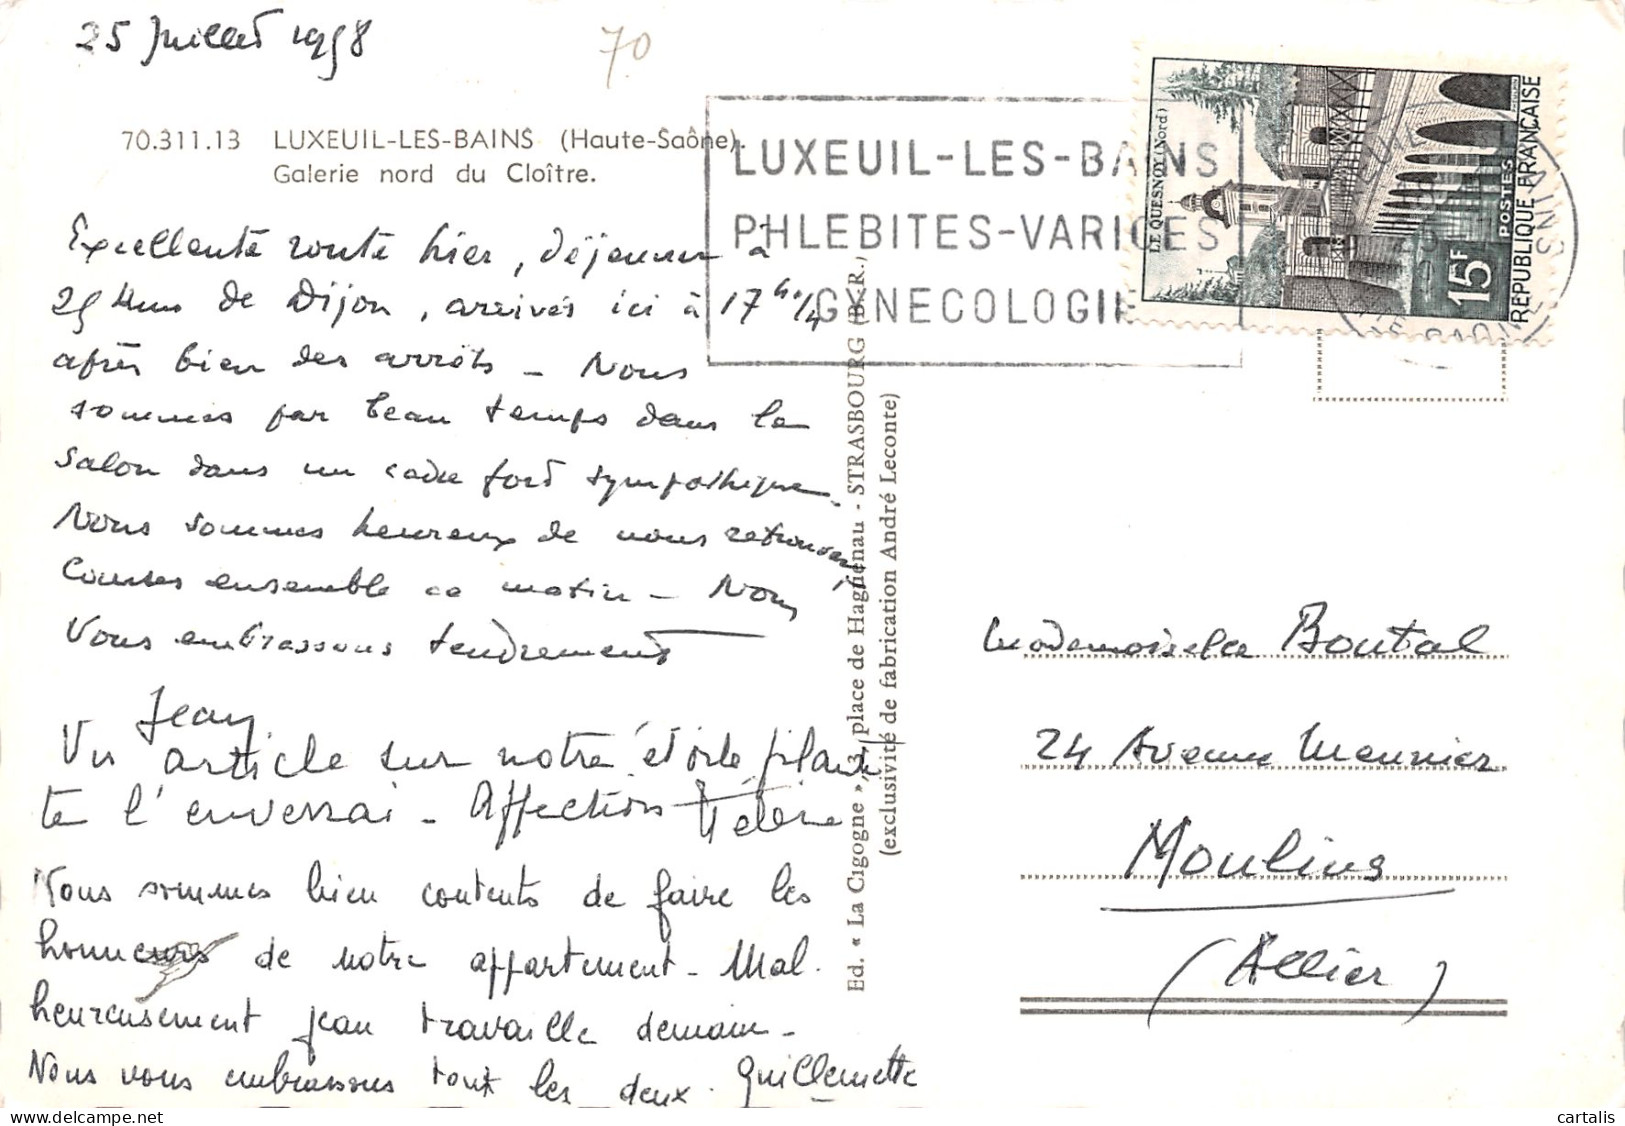 25 Juillet 1958
70
70.311.13 LUXEUIL-LES-BAINS (Haute-Saône).
Galerie nord du Cloître.
LUXEUIL-LES-BAINS
PHLEBITES-VARICES
GYNECOLOGIE
LE QUESNOY (Nord)
15F
POSTES
REPUBLIQUE FRANÇAISE
Excellente route hier, déjeuner à
25 Kms de Dijon, arrivés ici à 17h 1/4
après bien des arrêts - Nous
sommes par beau temps dans le
salon dans un cadre fort sympathique.
Nous sommes heureux de nous retrouver,
Courses ensemble ce matin - Nous
Vous embrassons tendrement
Jean
Vu article sur notre étoile filan
te l'enverrai - Affections Hélène
Nous sommes bien contents de faire les
honneurs de notre appartement - Mal.
heureusement Jean travaille demain -
Nous vous embrassons tout les deux. Guillemette
Ed. « La Cigogne », 3, place de Haguenau - STRASBOURG (B.-R.)
(exclusivité de fabrication André Leconte)
Mademoiselle Boutal
24 Avenue Meunier
Moulins
(Allier)
cartalis